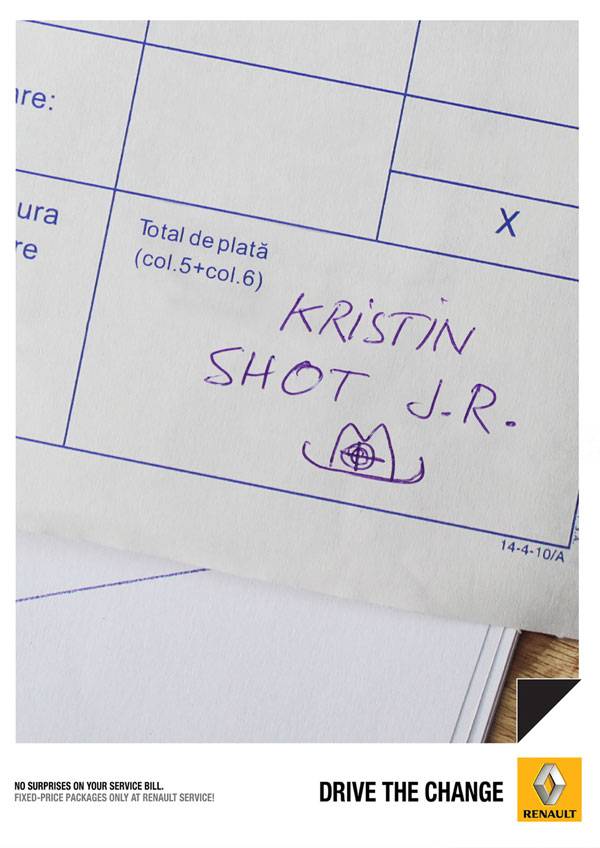 re:
X
ura
re
Total de plată
(col.5+col.6)
KRISTIN
SHOT J.R.
14-4-10/A
NO SURPRISES ON YOUR SERVICE BILL.
FIXED-PRICE PACKAGES ONLY AT RENAULT SERVICE!
DRIVE THE CHANGE
RENAULT